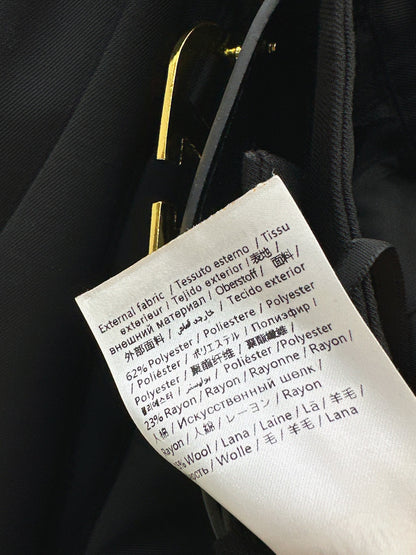 External fabric / Tessuto esterno / Tissu
extérieur / Tejido exterior / 表地 /
внешний материал / Oberstoff / 面料 /
外部面料 / قماش خارجي / Tecido exterior
62% Polyester / Poliestere / Polyester
/ Poliéster / ポリエステル / Полиэфир /
Polyester / 聚酯纤维 / 聚酯纖維 /
بوليستر / Poliéster / Polyester
23% Rayon / Rayon / Rayonne / Rayon /
人絹 / Искусственный шелк /
Rayon / 人絲 / レーヨン / Rayon
5% Wool / Lana / Laine / Lã / 羊毛 /
ость / Wolle / 毛 / 羊毛 / Lana